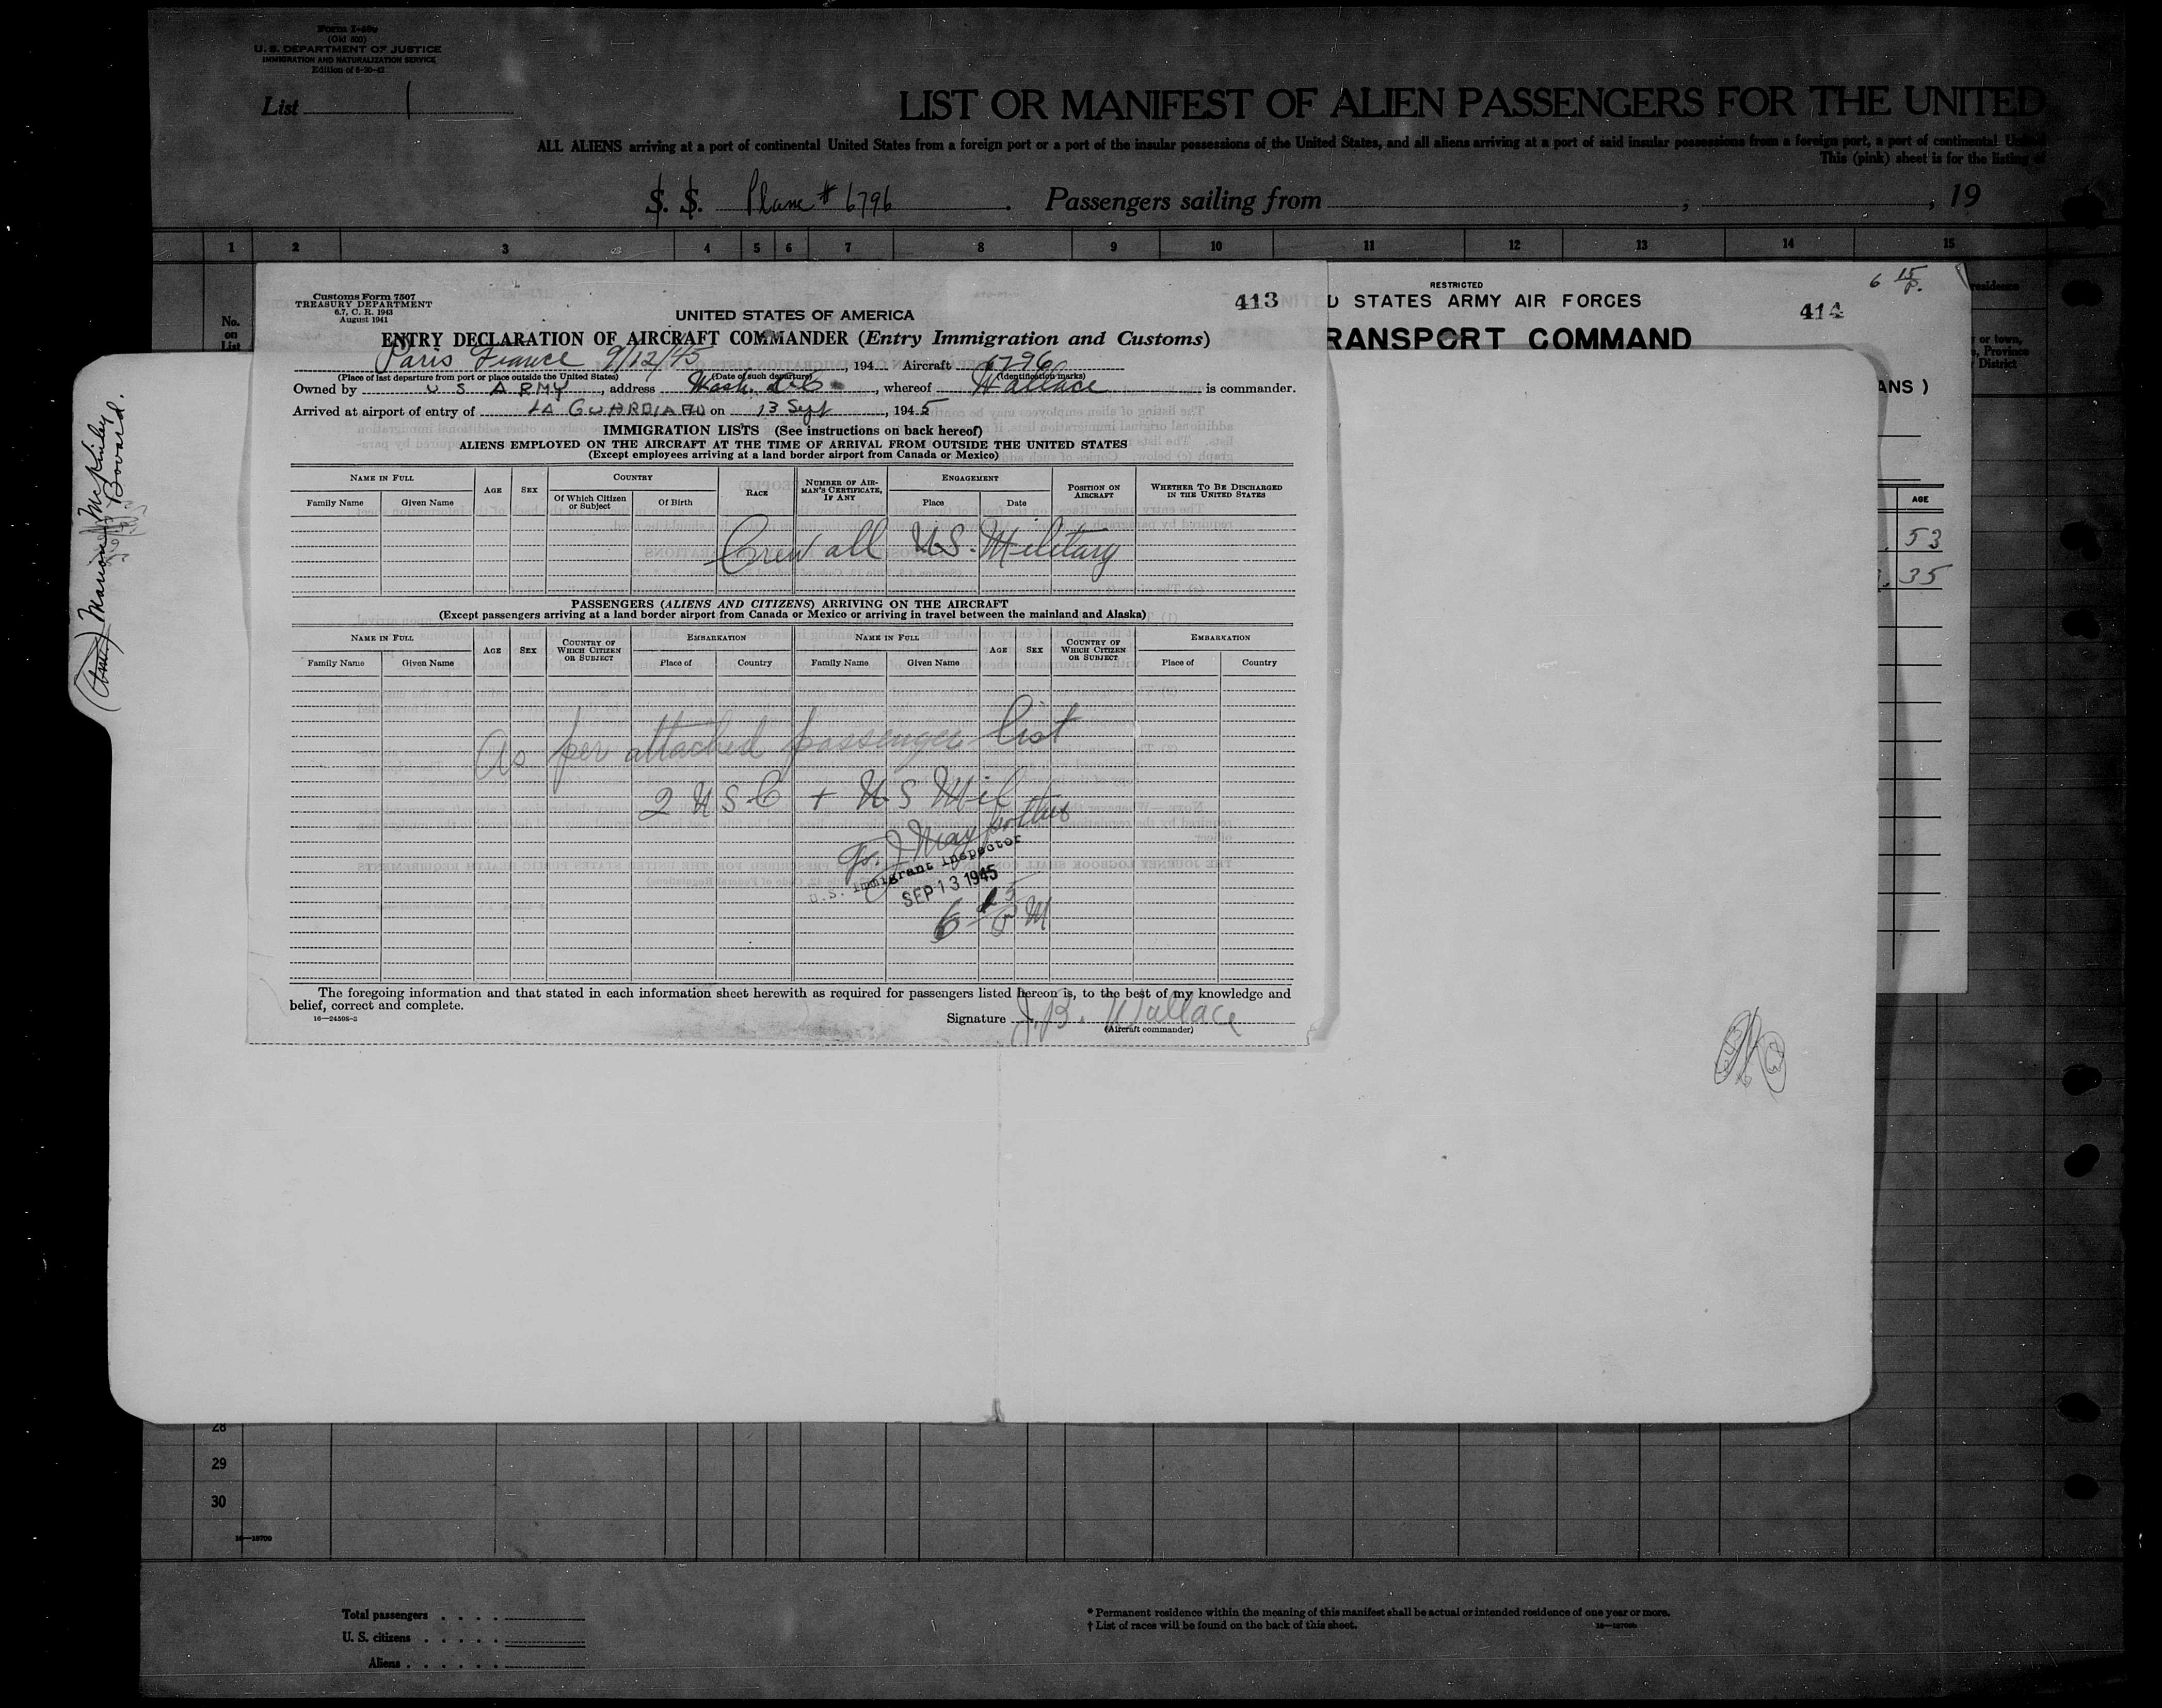 Form I-480
(Old 500)
U. S. DEPARTMENT OF JUSTICE
IMMIGRATION AND NATURALIZATION SERVICE
Edition of 6-20-42
List 1
LIST OR MANIFEST OF ALIEN PASSENGERS FOR THE UNITED
ALL ALIENS arriving at a port of continental United States from a foreign port or a port of the insular possessions of the United States, and all aliens arriving at a port of said insular possessions from a foreign port, a port of continental United
This (pink) sheet is for the listing of
S. S. Plane # 6796 . Passengers sailing from , , 19
1 2 3 4 5 6 7 8 9 10 11 12 13 14 15
No.
on
List
residence
or town,
Province
District
Marion McKinley
Bovard.
Customs Form 7507
TREASURY DEPARTMENT
6.7, C. R. 1943
August 1941
413
UNITED STATES OF AMERICA
ENTRY DECLARATION OF AIRCRAFT COMMANDER (Entry Immigration and Customs)
Paris France 9/12/45 , 194 Aircraft 6796
(Place of last departure from port or place outside the United States) (Date of such departure) (Identification marks)
Owned by U S ARMY , address Wash. D.C. , whereof Wallace is commander.
Arrived at airport of entry of LA GUARDIA on 13 Sept , 1945
IMMIGRATION LISTS (See instructions on back hereof)
ALIENS EMPLOYED ON THE AIRCRAFT AT THE TIME OF ARRIVAL FROM OUTSIDE THE UNITED STATES
(Except employees arriving at a land border airport from Canada or Mexico)
NAME IN FULL AGE SEX COUNTRY RACE NUMBER OF AIRMAN'S CERTIFICATE, IF ANY ENGAGEMENT POSITION ON AIRCRAFT WHETHER TO BE DISCHARGED IN THE UNITED STATES
Family Name Given Name Of Which Citizen or Subject Of Birth Place Date
Crew all U.S. Military
PASSENGERS (ALIENS AND CITIZENS) ARRIVING ON THE AIRCRAFT
(Except passengers arriving at a land border airport from Canada or Mexico or arriving in travel between the mainland and Alaska)
NAME IN FULL AGE SEX COUNTRY OF WHICH CITIZEN OR SUBJECT EMBARKATION NAME IN FULL AGE SEX COUNTRY OF WHICH CITIZEN OR SUBJECT EMBARKATION
Family Name Given Name Place of Country Family Name Given Name Place of Country
As per attached passenger list
2 U S C + U S Mil
U. S. Immigrant Inspector
SEP 13 1945
6 15 PM
The foregoing information and that stated in each information sheet herewith as required for passengers listed hereon is, to the best of my knowledge and
belief, correct and complete.
16—24508-3
Signature J. B. Wallace
(Aircraft commander)
RESTRICTED
D STATES ARMY AIR FORCES
RANSPORT COMMAND
6 15 P.
414
ANS )
AGE
53
35
28
29
30
16—18700
Total passengers
U. S. citizens
Aliens
* Permanent residence within the meaning of this manifest shall be actual or intended residence of one year or more.
† List of races will be found on the back of this sheet.